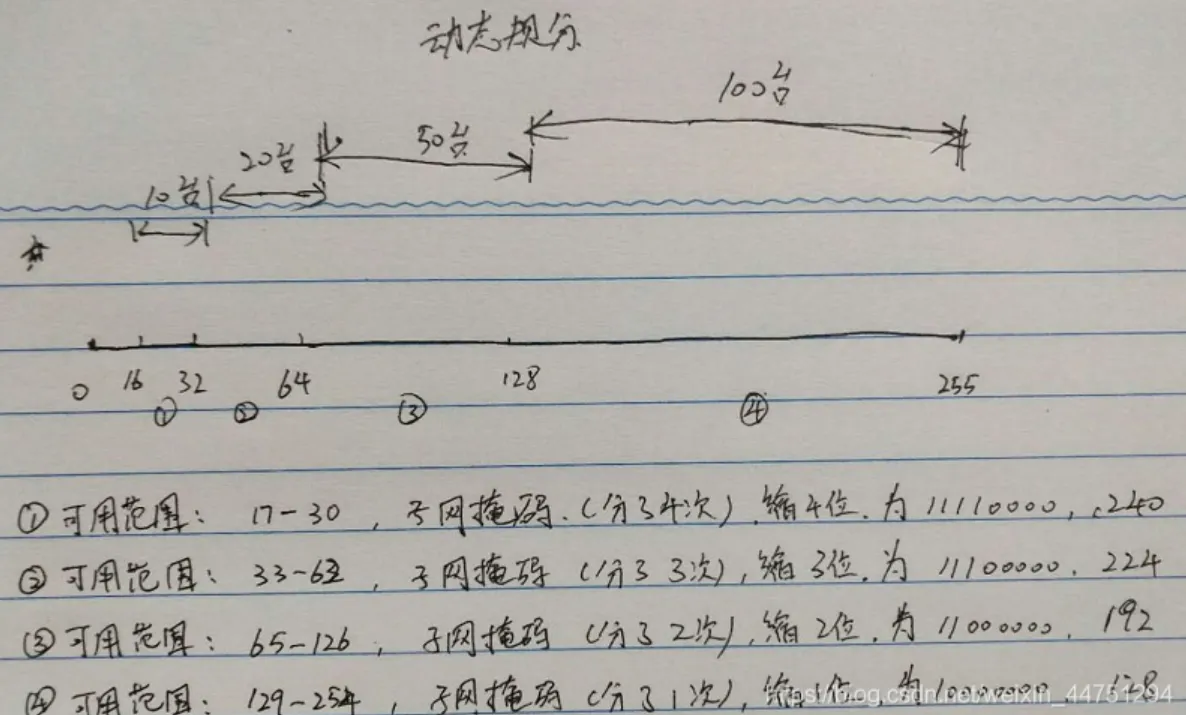 动态规分
100台
50台
20台
10台
0 16 32 64 128 255
① ② ③ ④
①可用范围: 17-30, 子网掩码.(分了4次).缩4位.为11110000, .240
②可用范围: 33-62, 子网掩码(分了3次),缩3位.为11100000. 224
③可用范围: 65-126, 子网掩码(分了2次),缩2位.为11000000. 192
④可用范围: 129-254, 子网掩码(分了1次),缩1位.为10000000. 128
https://blog.csdn.net/weixin_44751294